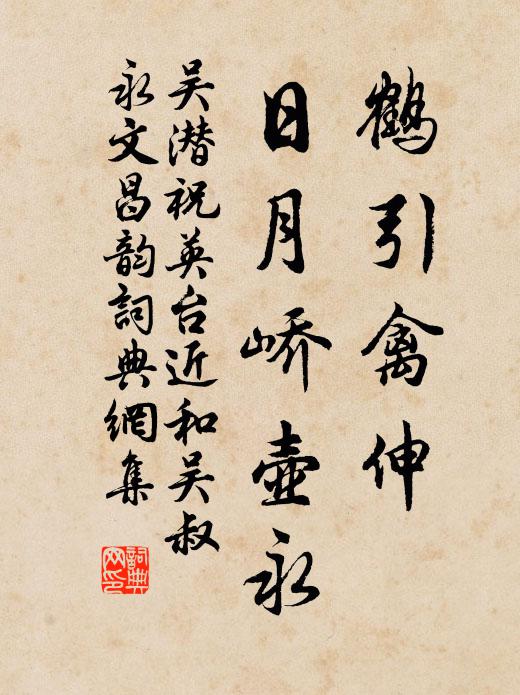 鶴引禽伸
日月峤壶永
吴潜祝英台近和吴叔
永文昌韵詞典網集
詞典
网印